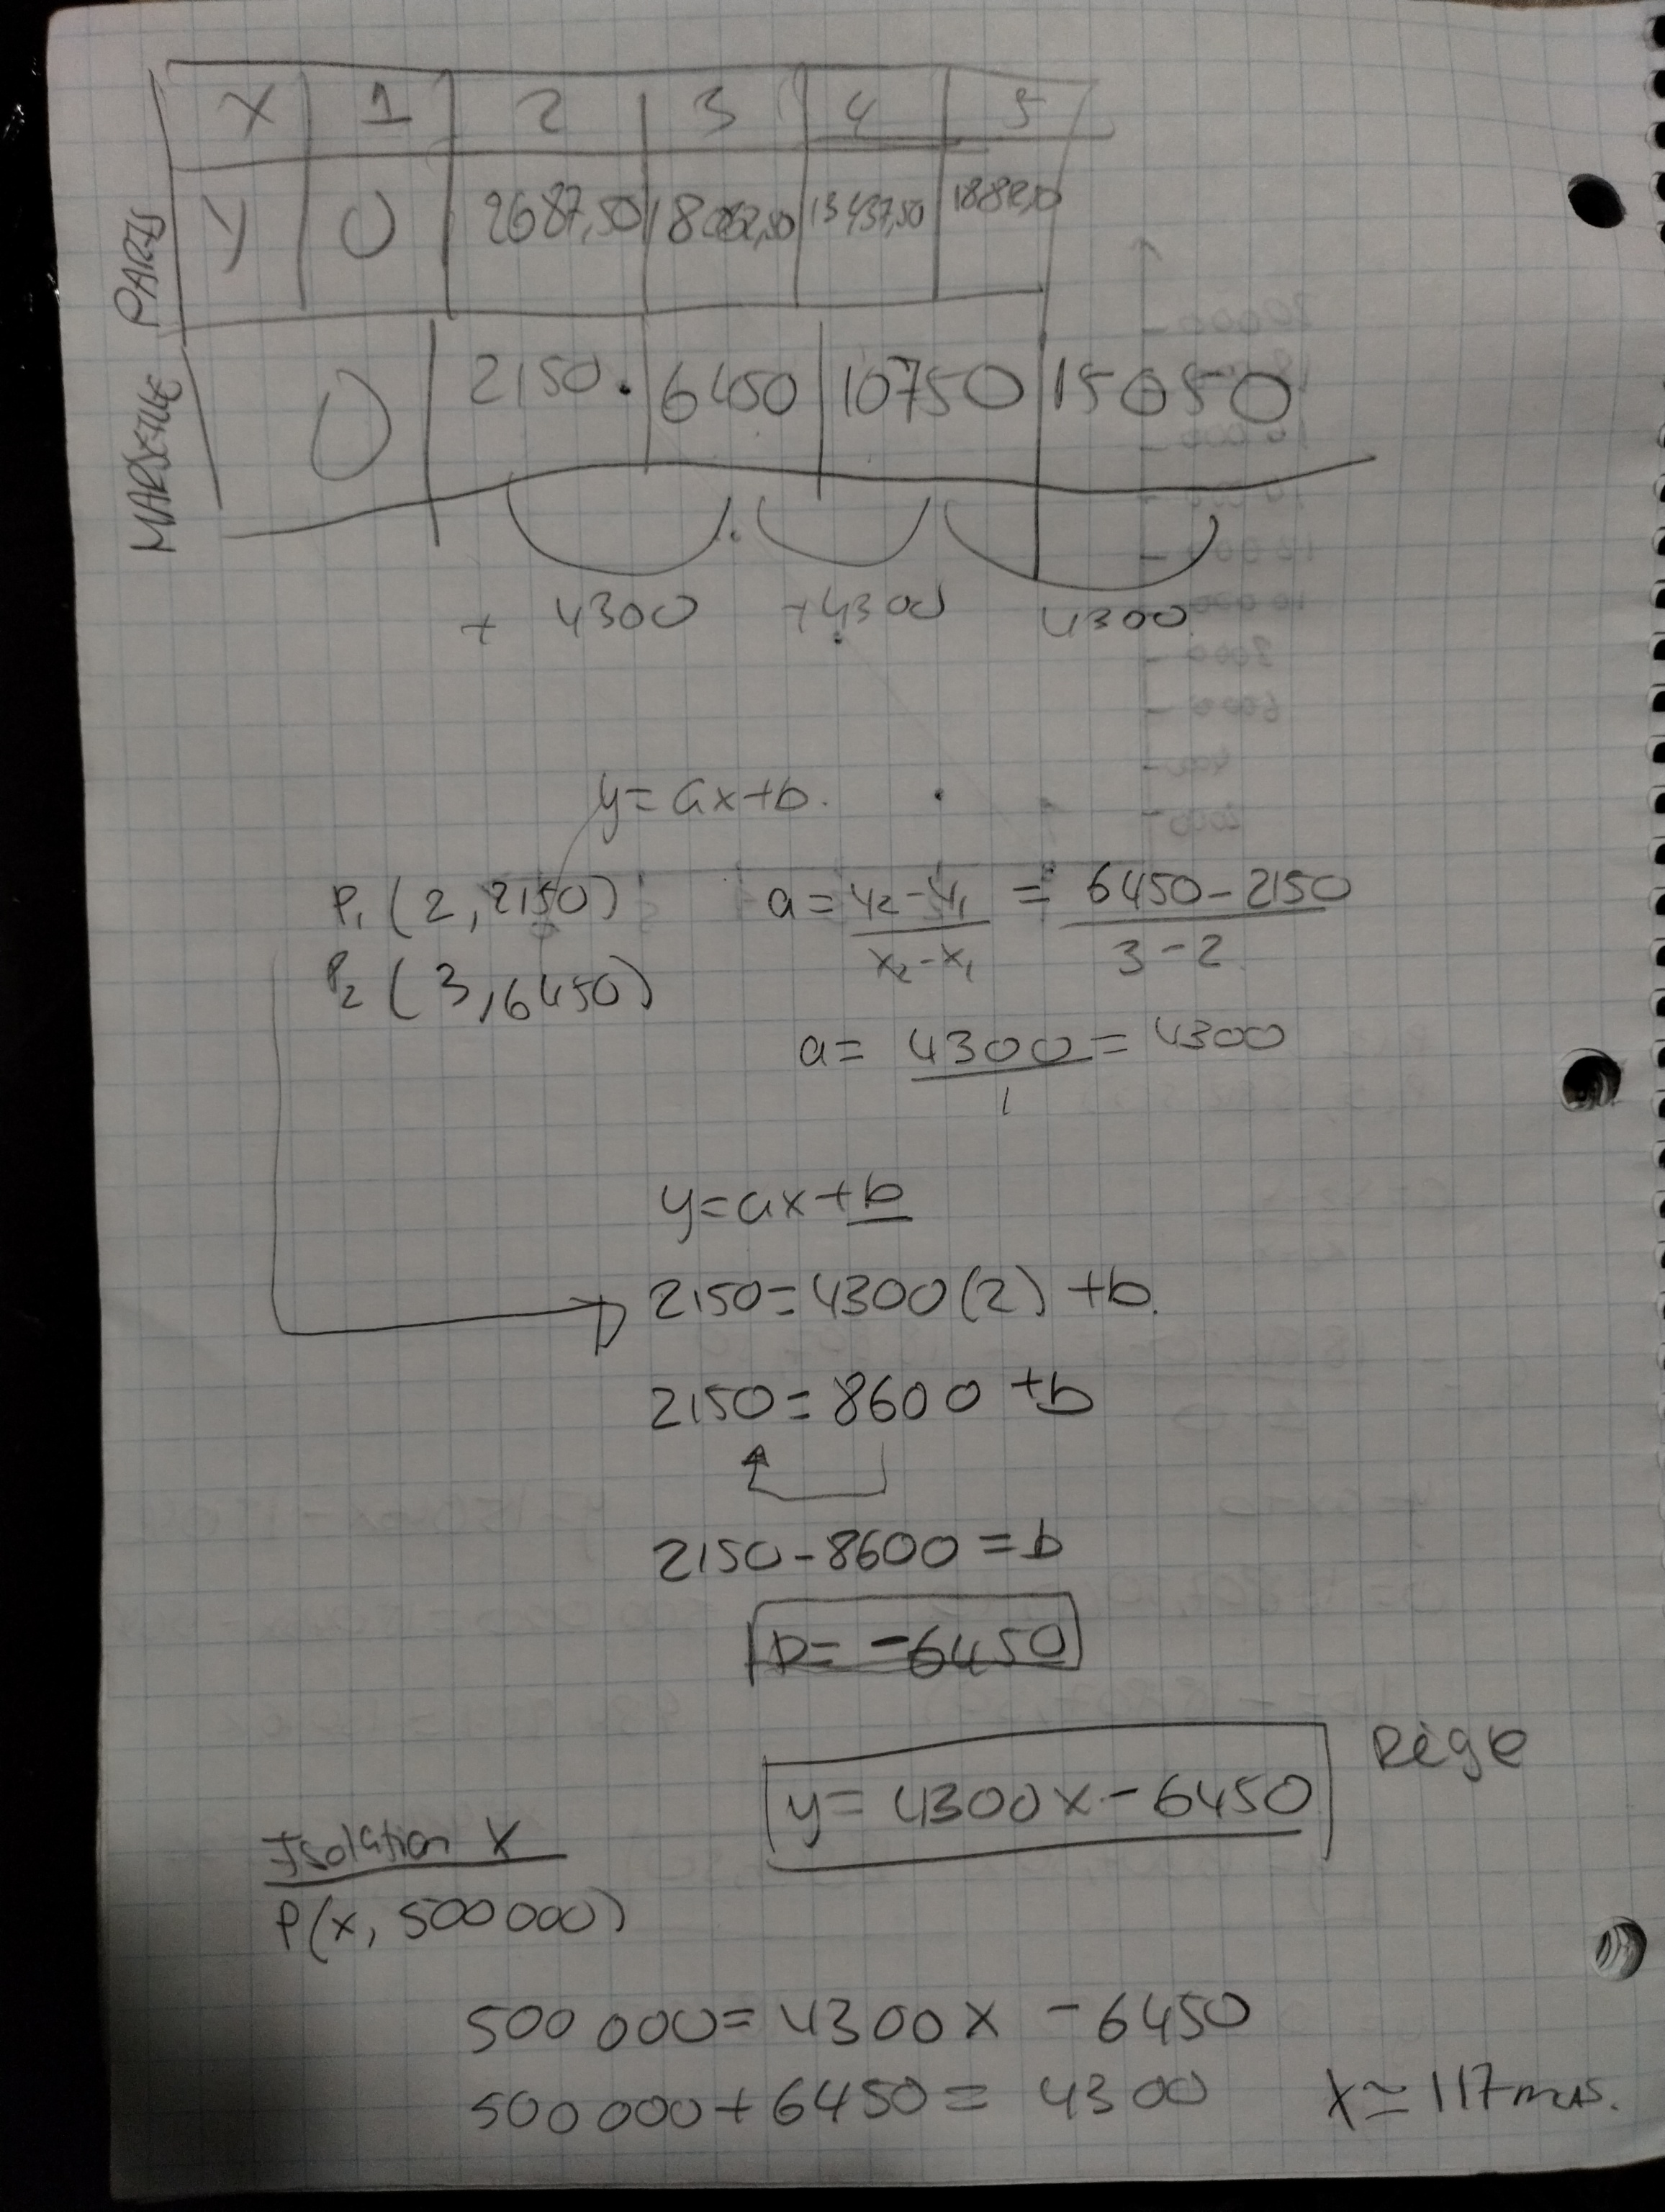 X 1 2 3 4 5
PARIS Y 0 2687,50 8062,50 13437,50
MARSEILLE 0 2150. 6450 10750 15050
+ 4300 +4300 4300
y=ax+b.
P₁ (2, 2150) a = y₂-y₁ / x₂-x₁ = 6450-2150 / 3-2
P₂ (3, 6450)
a = 4300 / 1 = 4300
y=ax+b
2150=4300(2)+b.
2150=8600+b
2150-8600=b
b= -6450
Règle
y=4300x-6450
Isolation X
P(x, 500 000)
500 000=4300x -6450
500 000+6450= 4300 x≃117 mois.